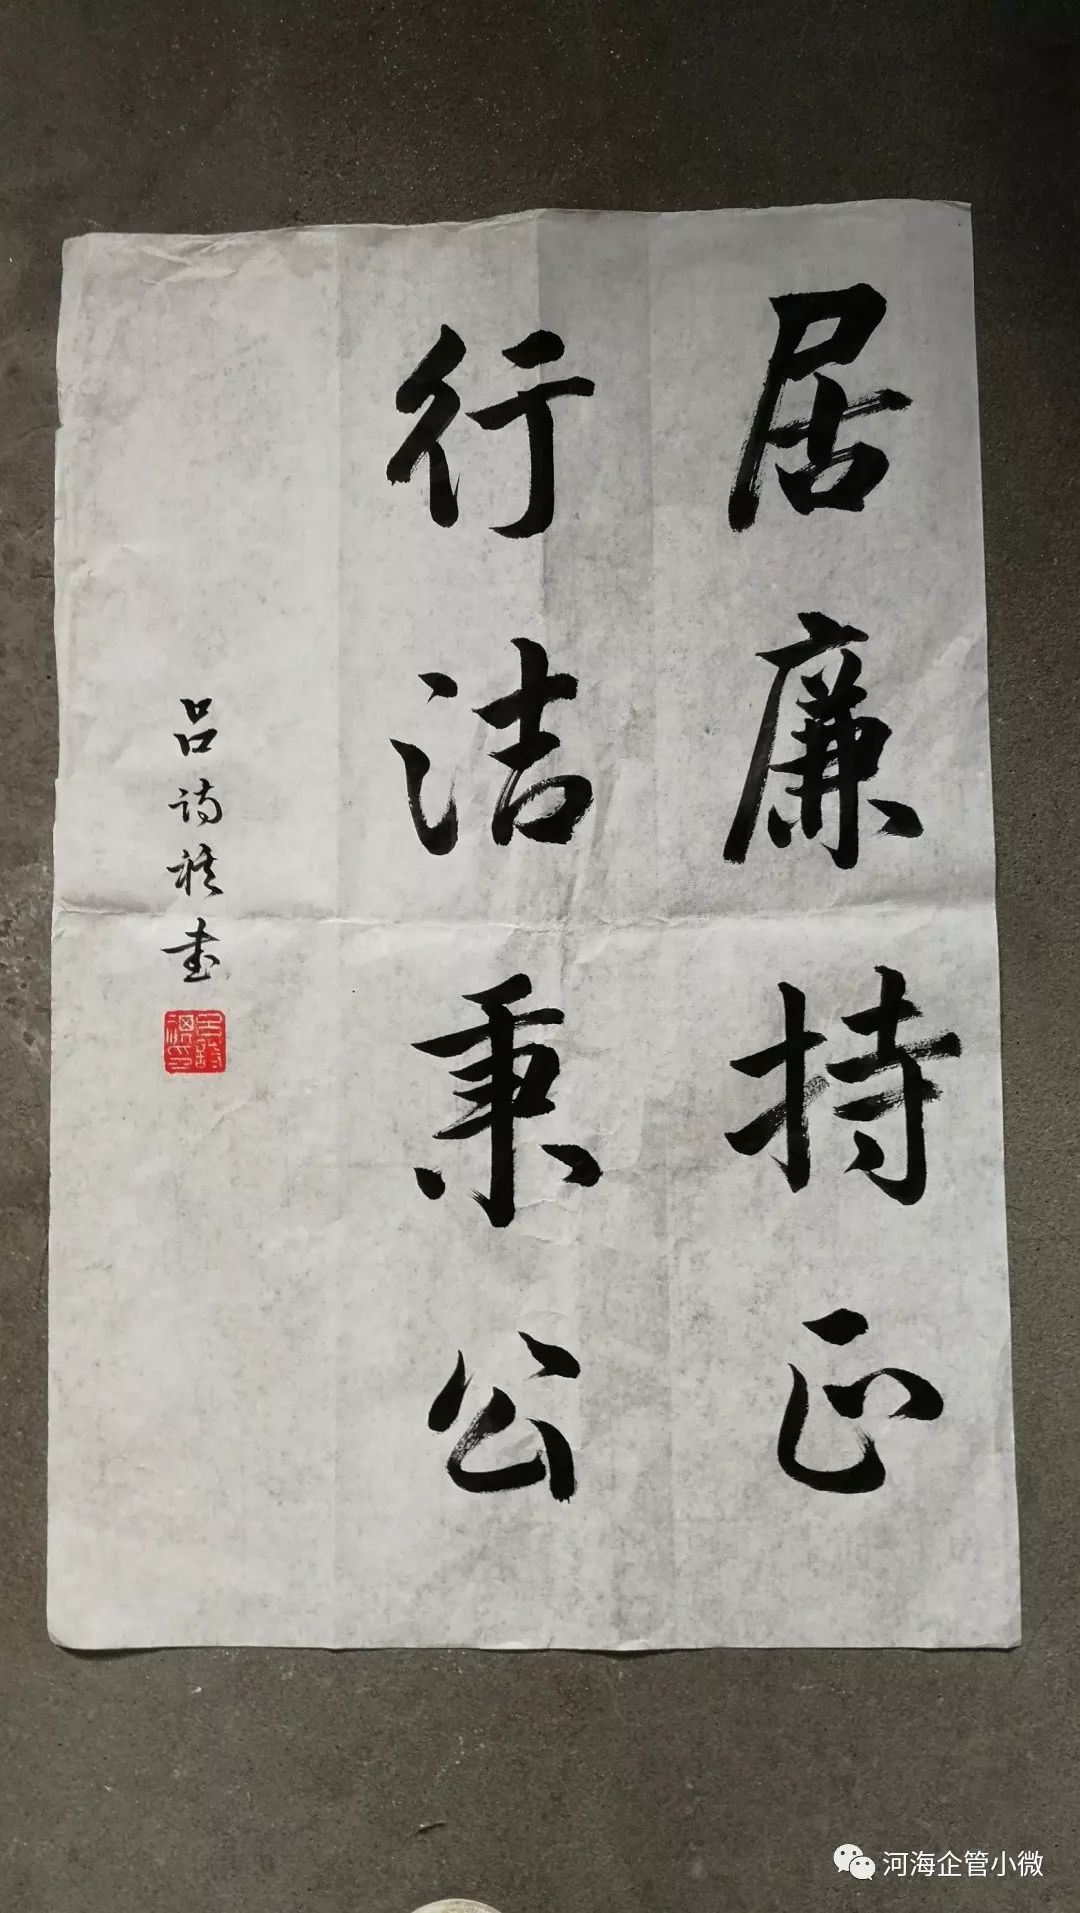 居廉持正
行洁秉公
吕诗稹书
河海企管小微